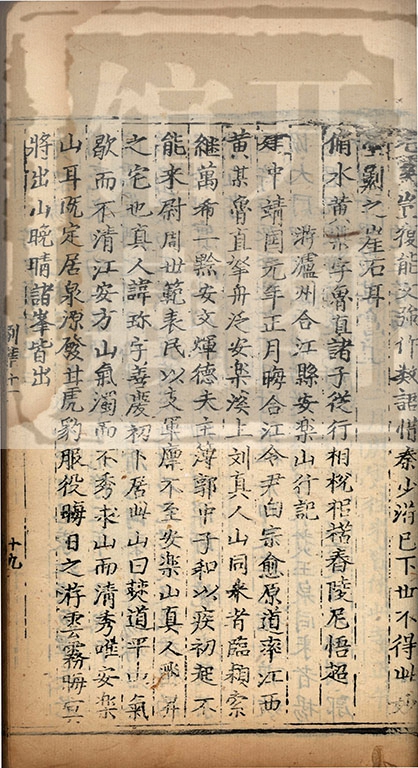 老矣豈復能文強作數語惜秦少游已下世不得此妙
墨劖之崖石耳
脩水黃某字魯直諸子從行相棁相楛舂陵尼悟超
游瀘州合江縣安樂山行記
建中靖國元年正月晦合江令尹白宗愈原道率江西
黃某魯直拏舟泛安樂溪上刘真人山同來者臨潁索
継萬希一黔安文煇德夫主簿郭中子和以疾初起不
能來尉周世範表民以支軍廩不至安樂山真人飛昇
之宅也真人諱珎字善慶初卜居此山曰僰道平山氣
歇而不清江安方山氣濁而不秀求山而清秀唯安樂
山耳既定居泉源發甘虎豹服役晦日之游雲霧晦冥
將出山晚晴諸峯皆出
十九